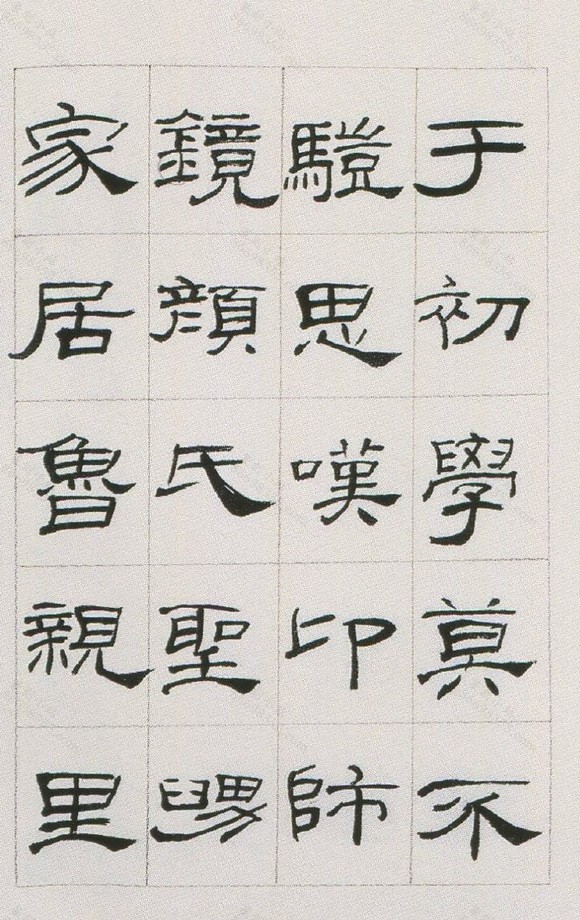 于初學莫不
驥思嘆卬師
鏡顏氏聖舅
家居魯親里